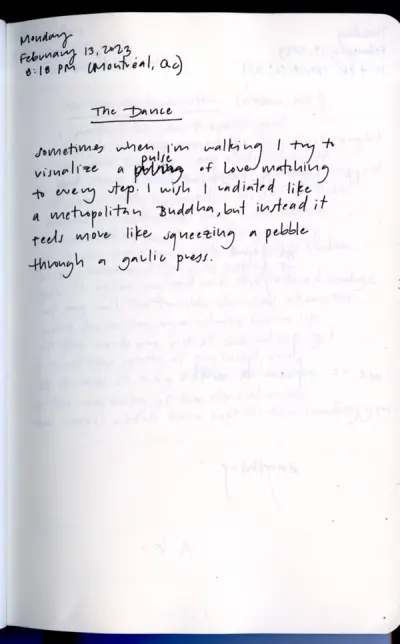 Monday
February 13, 2023
8:18 PM (Montréal, QC)
The Dance
sometimes when I'm walking I try to
pulse
visualize a of Love matching
to every step. I wish I radiated like
a metropolitan Buddha, but instead it
feels more like squeezing a pebble
through a garlic press.